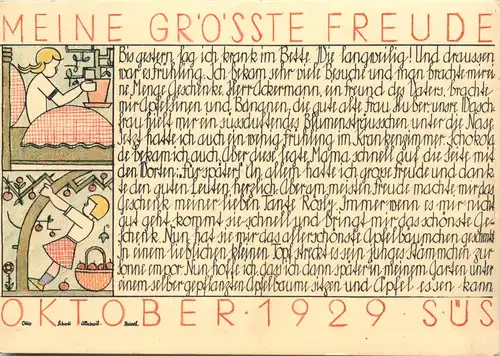 MEINE GRÖSSTE FREUDE
Bis gestern lag ich krank im Bette. Wie langweilig! Und draussen
war es Frühling. Ich bekam sehr viele Besuche und man brachte mir ei-
ne Menge Geschenke. Herr Ackermann, ein Freund des Vaters, brachte
mir Apfelsinen und Bananen, die gute alte Frau Huber unsre Wasch-
frau hielt mir ein süssduftendes Blumensträusschen unter die Nase.
Jetzt hatte ich auch ein wenig Frühling im Krankenzimmer. Schokola-
de bekam ich auch. Aber diese legte Mama schnell auf die Seite mit
den Worten: „Für später!" An allem hatte ich grosse Freude und dank-
te den guten Leuten herzlich. Aber am meisten Freude machte mir das
Geschenk meiner lieben Tante Rösly. Immer wenn es mir nicht
gut geht, kommt sie schnell und bringt mir das schönste Ge-
schenk. Nun hat sie mir das allerschönste Apfelbäumchen geschenkt.
In einem lieblichen kleinen Topf streckt es sein junges Stämmchen zur
Sonne empor. Nun hoffe ich, das ich dann später in meinem Garten unter
einem selbergepflanzten Apfelbaume sitzen und Äpfel essen kann.
OKTOBER·1929·S·Ü·S
Otto Allschwil Basel.